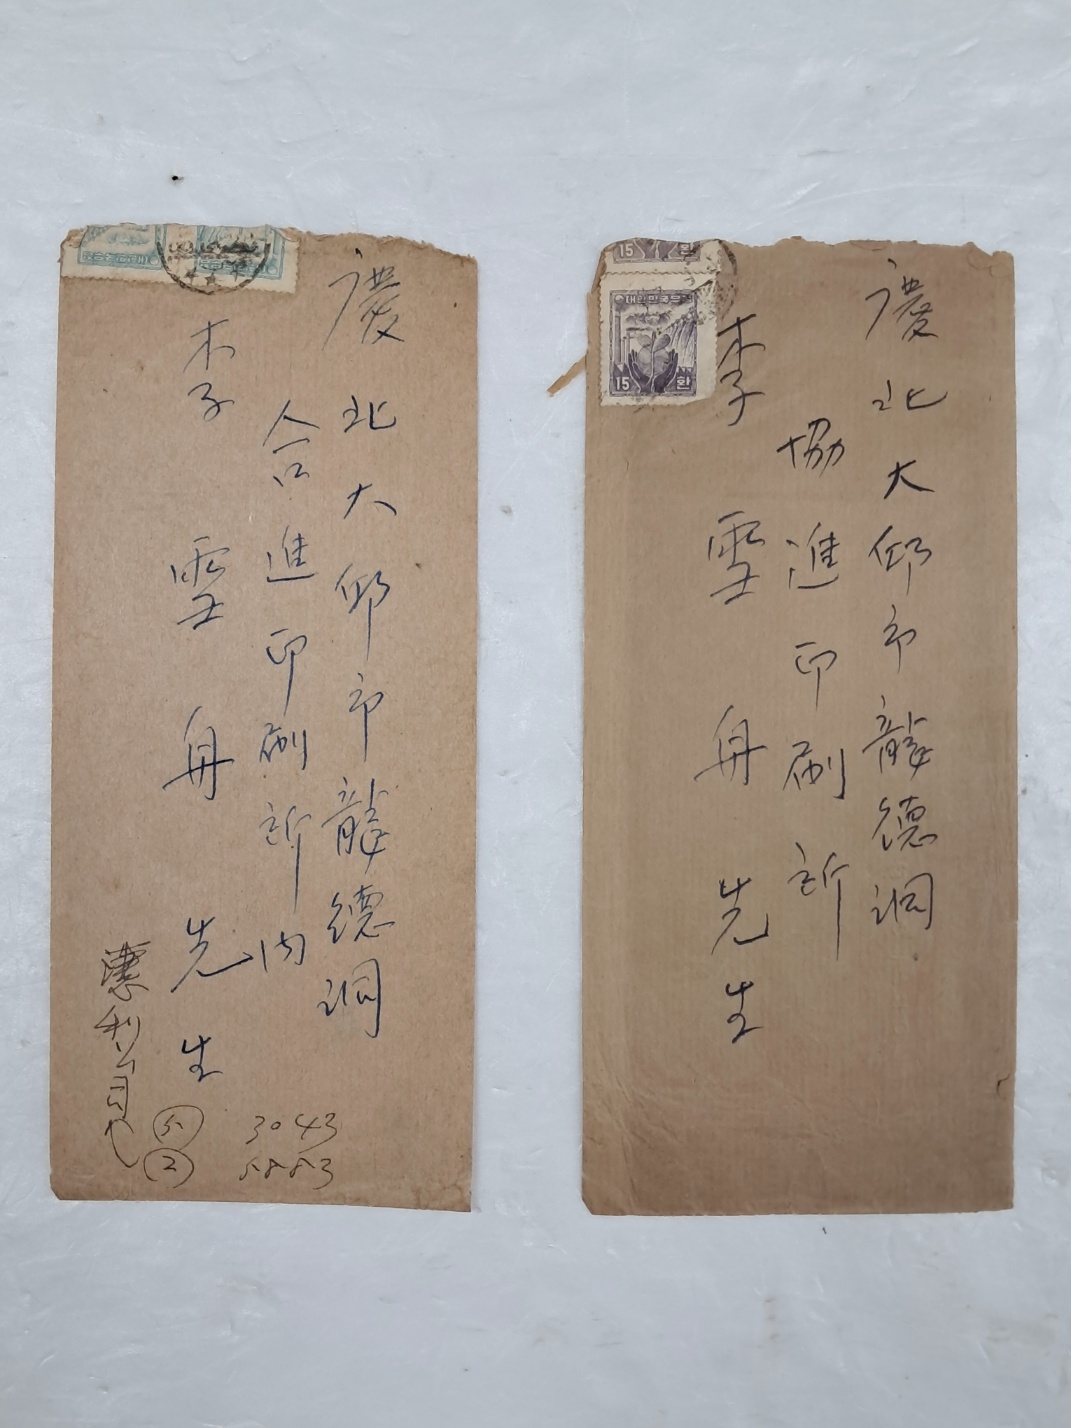 慶北大邱市龍德洞
合進印刷所内
李雪舟先生
惠利公司
5
2
3043
5883
15 환
대한민국우표
15 환
慶北大邱市龍德洞
協進印刷所
李雪舟先生